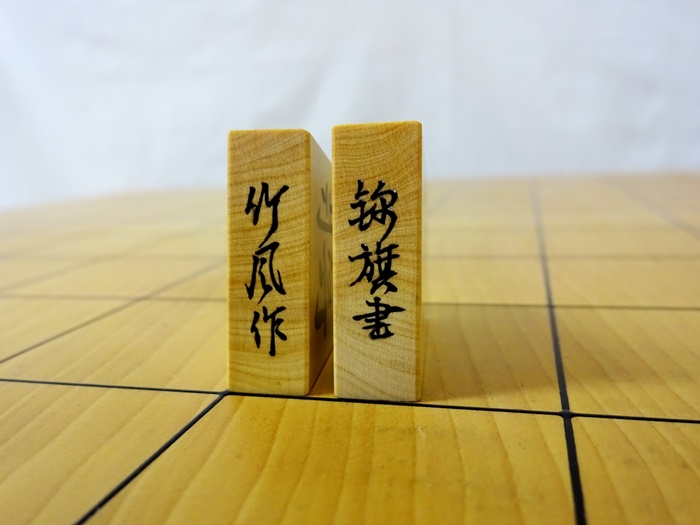 竹風作
錦旗書